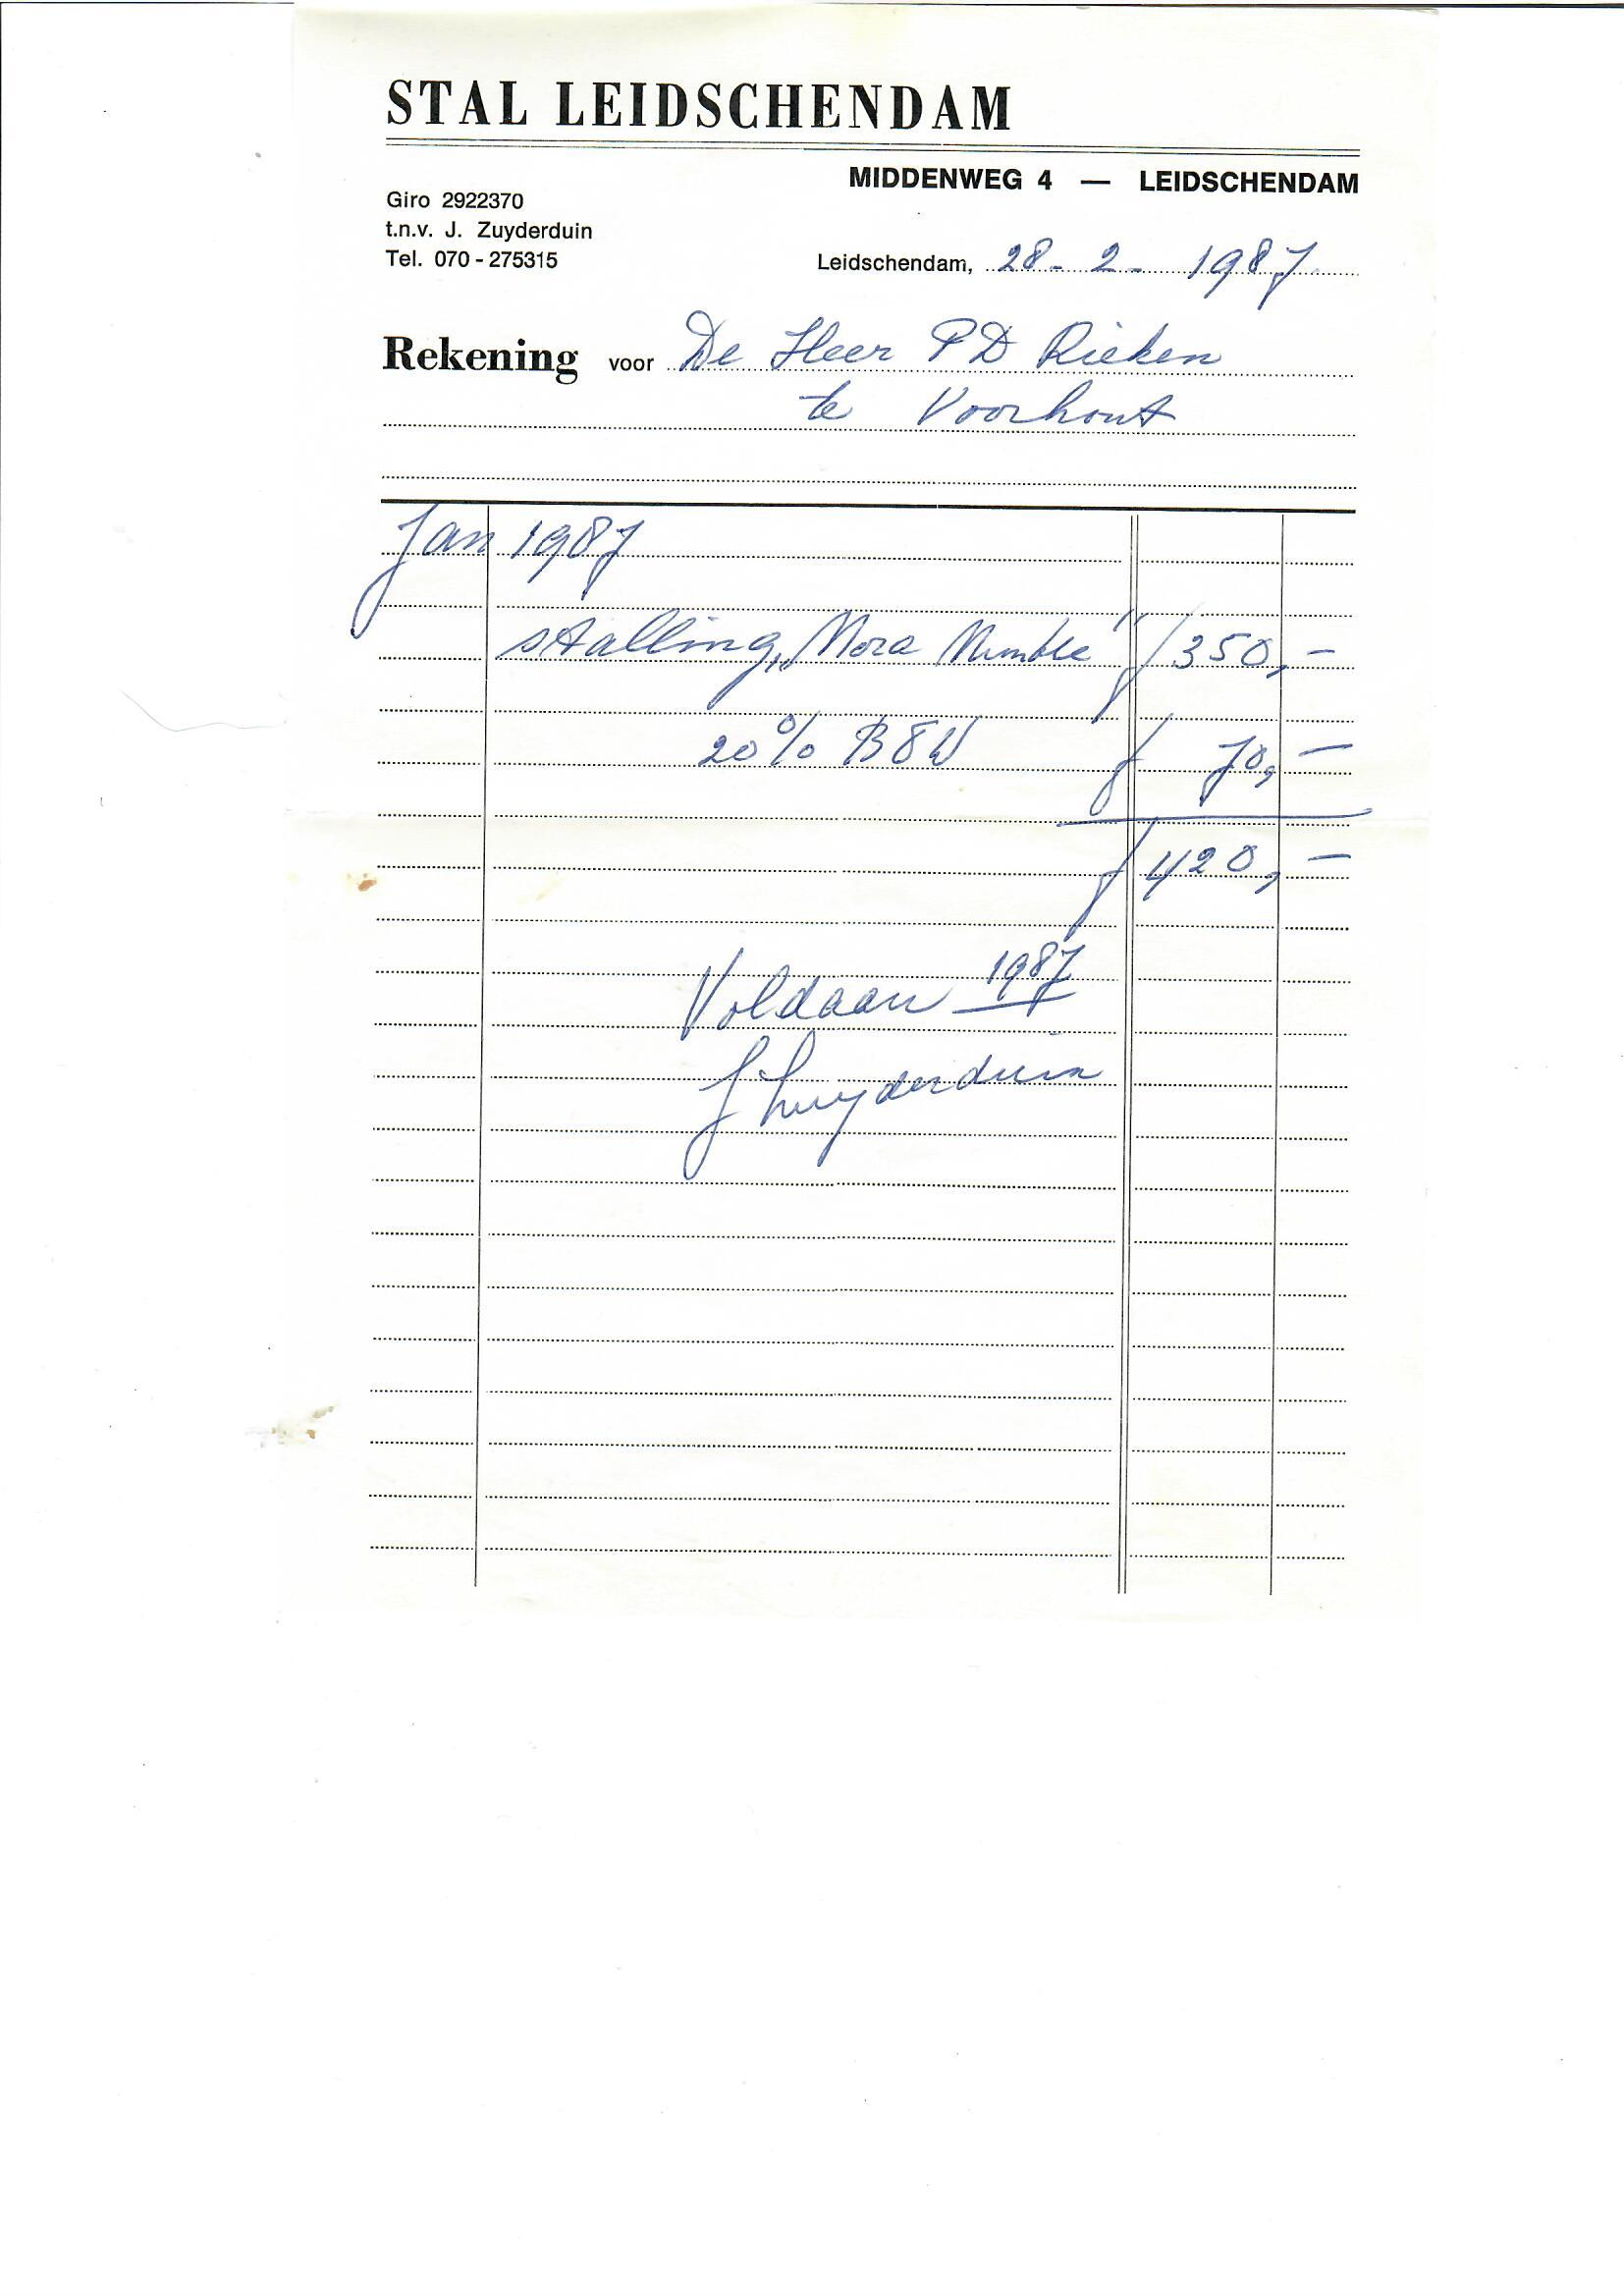 STAL LEIDSCHENDAM
MIDDENWEG 4 — LEIDSCHENDAM
Giro 2922370
t.n.v. J. Zuyderduin
Tel. 070 - 275315
Leidschendam, 28 - 2 - 1987
Rekening voor De Heer P D Rieken
te Voorhout
Jan 1987
stalling „Mora Mumble" f 350,–
20% BTW f 70,–
f 420,–
Voldaan 1987
J Zuyderduin